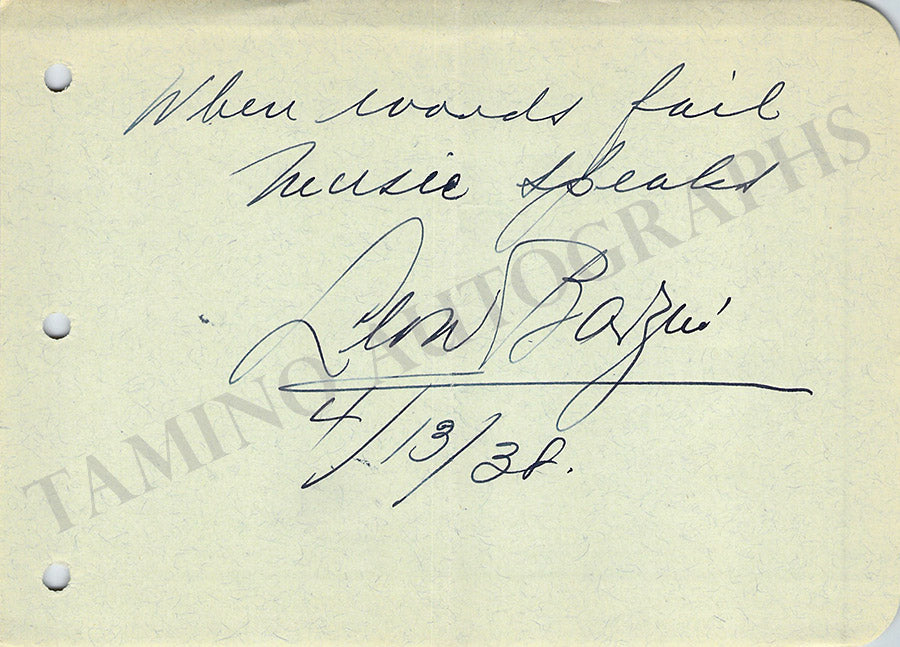 When words fail
Music speaks
Leon Barzin
4/13/38.
TAMINO AUTOGRAPHS